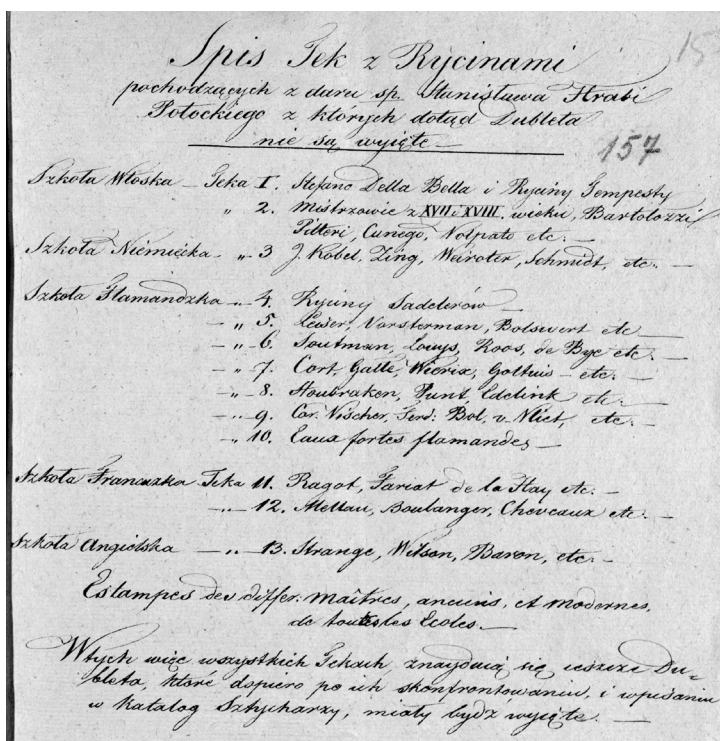 15
Spis Tek z Rycinami
pochodzących z daru sp. Stanisława Hrabi
Potockiego z których dotąd Dubleta
nie są wyięte —
157
Szkoła Włoska — Teka I. Stefano Della Bella i Ryciny Tempesty
" 2. Mistrzowie z XVII i XVIII. wieku, Bartolozzi
Pitteri, Cunego, Volpato etc. —
Szkoła Niemiecka — " 3 J. Kobel, Zing, Weiroter, Schmidt, etc. —
Szkoła Flamandzka — " 4. Ryciny Sadelerów —
— " 5. Vorsterman, Bolswert etc —
— " 6. Soutman, Louys, Roos, de Bye etc. —
— " 7. Cort, Galle, Wierix, Goltuis — etc. —
— " 8. Houbraken, Punt, Edelink etc. —
— " 9. Cor. Vischer, Ferd: Bol, v. Vliet, etc. —
— " 10. Eaux fortes flamandes —
Szkoła Francuzka Teka 11. Ragot, Fariat de la Hay etc. —
— " 12. Mellau, Boulanger, Cheveaux etc. —
Szkoła Angielska — " 13. Strange, Wilson, Baron, etc. —
Estampes des differ: Maîtres, anciens, et modernes,
de toutes les Ecoles. —
W tych więc wszystkich Tekach znayduią się ieszcze Du-
bleta, które dopiero po ich skonfrontowaniu, i wpisaniu
w Katalog Sztycharzy, miały bydz wyięte. —